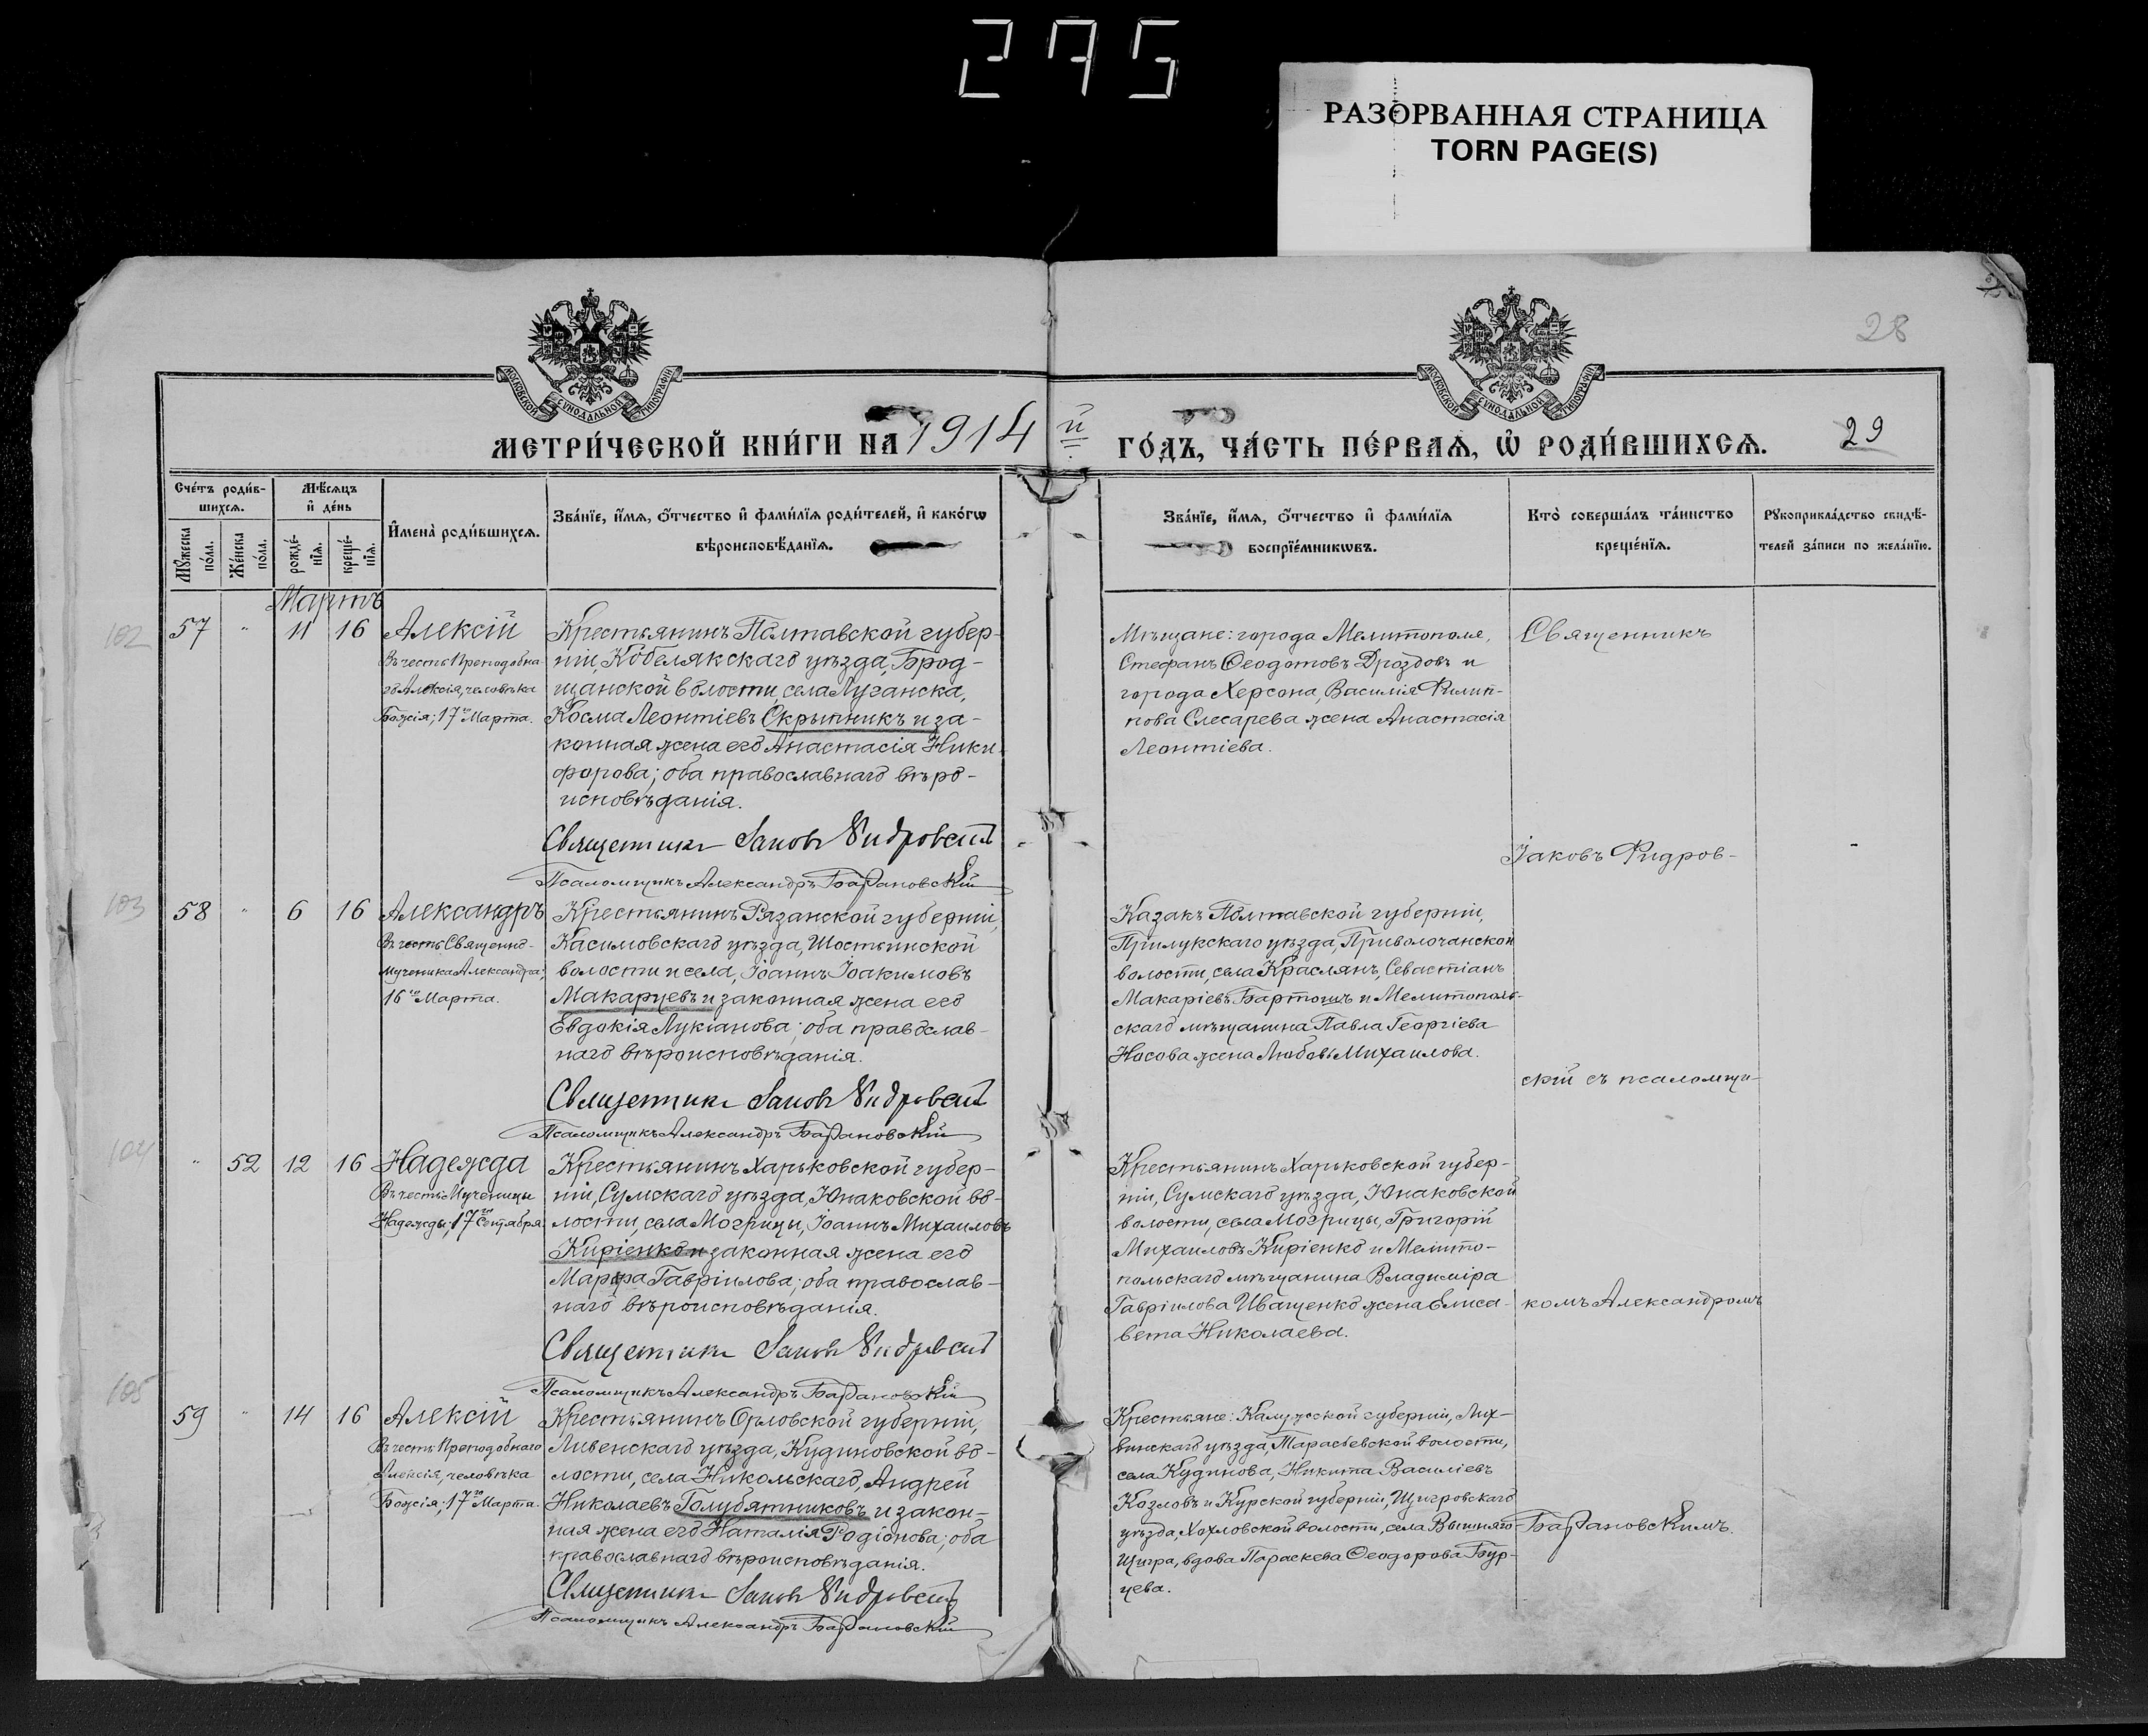 275
РАЗОРВАННАЯ СТРАНИЦА
TORN PAGE(S)
28
МОСКОВСКОЙ СУНОДАЛЬНОЙ ТИПОГРАФІИ
МОСКОВСКОЙ СУНОДАЛЬНОЙ ТИПОГРАФІИ
МЕТРИ́ЧЕСКОЙ КНИ́ГИ НА 1914 й ГО́ДЪ, ЧА́СТЬ ПЕ́РВАѦ, Ѡ҆ РОДИ́ВШИХСѦ. 29
Сче́тъ роди́в-
шихсѧ.
Мꙋ́жеска по́ла.
Же́нска по́ла.
Мѣ́сѧцъ
и҆ де́нь
рожде́-нїѧ.
креще́-нїѧ.
И҆мена̀ роди́вшихсѧ.
Зва́нїе, и҆́мѧ, ѻ҆́тчество и҆ фами́лїѧ роди́телей, и҆ како́гѡ
вѣроисповѣ́данїѧ.
Зва́нїе, и҆́мѧ, ѻ҆́тчество и҆ фами́лїѧ
воспрїе́мникѡвъ.
Кто̀ соверша́лъ та́инство
креще́нїѧ.
Рꙋкоприкла́дство свидѣ́-
телей за́писи по жела́нїю.
Мартъ
102
57 " 11 16
Алексій
Въ честь Преподобна-
го Алексія, человѣка
Божія; 17го Марта.
Крестьянинъ Полтавской губер-
ніи, Кобелякскаго уѣзда, Брод-
щанской волости, села Луганска,
Косма Леонтіевъ Скрыпникъ и за-
конная жена его Анастасія Ники-
форова; оба православнаго вѣро-
исповѣданія.
Священникъ Іаковъ Ѳидровскій
Псаломщикъ Александръ Барановскій
Мѣщане: города Мелитополя,
Стефанъ Ѳеодотовъ Дроздовъ и
города Херсона, Василія Филип-
пова Слесарева жена Анастасія
Леонтіева.
Священникъ
Іаковъ Фидров-
103
58 " 6 16
Александръ
Въ честь Священно-
мученика Александра;
16го Марта.
Крестьянинъ Рязанской губерніи,
Касимовскаго уѣзда, Шостьинской
волости и села, Іоаннъ Іоакимовъ
Макарцевъ и законная жена его
Евдокія Лукіанова; оба православ-
наго вѣроисповѣданія.
Священникъ Іаковъ Ѳидровскій
Псаломщикъ Александръ Барановскій
Казакъ Полтавской губерніи,
Прилукскаго уѣзда, Приволочанской
волости, села Краслянъ, Севастіанъ
Макаріевъ Бартошъ и Мелитополь-
скаго мѣщанина Павла Георгіева
Носова жена Любовь Михаилова.
скій съ псаломщи-
104
" 52 12 16
Надежда
Въ честь Мученицы
Надежды; 17го Сентября.
Крестьянинъ Харьковской губер-
ніи, Сумскаго уѣзда, Юнаковской во-
лости, села Могрицы, Іоаннъ Михаиловъ
Киріенко и законная жена его
Марфа Гавріилова; оба православ-
наго вѣроисповѣданія.
Священникъ Іаковъ Ѳидровскій
Псаломщикъ Александръ Барановскій
Крестьянинъ Харьковской губер-
ніи, Сумскаго уѣзда, Юнаковской
волости, села Могрицы, Григорій
Михаиловъ Киріенко и Мелито-
польскаго мѣщанина Владиміра
Гавріилова Иващенко жена Елиса-
вета Николаева.
комъ Александромъ
105
59 " 14 16
Алексій
Въ честь Преподобнаго
Алексія, человѣка
Божія; 17го Марта.
Крестьянинъ Орловской губерніи,
Ливенскаго уѣзда, Кудиновской во-
лости, села Никольскаго, Андрей
Николаевъ Голубятниковъ и закон-
ная жена его Наталія Родіонова; оба
православнаго вѣроисповѣданія.
Священникъ Іаковъ Ѳидровскій
Псаломщикъ Александръ Барановскій
Крестьяне: Калужской губерніи, Лих-
винскаго уѣзда, Тарасьевской волости,
села Кудинова, Никита Василіевъ
Козловъ и Курской губерніи, Щигровскаго
уѣзда, Хохловской волости, села Вышняго
Щигра, вдова Параскева Ѳеодорова Бур-
цева.
Барановскимъ.